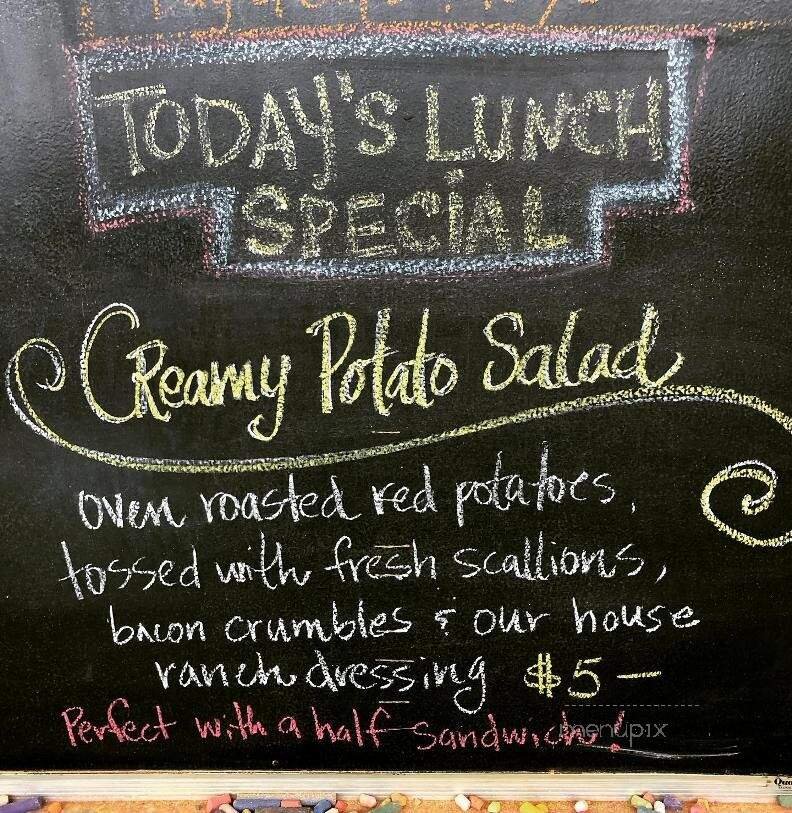 TODAY'S LUNCH
SPECIAL
Creamy Potato Salad
oven roasted red potatoes,
tossed with fresh scallions,
bacon crumbles & our house
ranch dressing $5—
Perfect with a half sandwich!
menupix